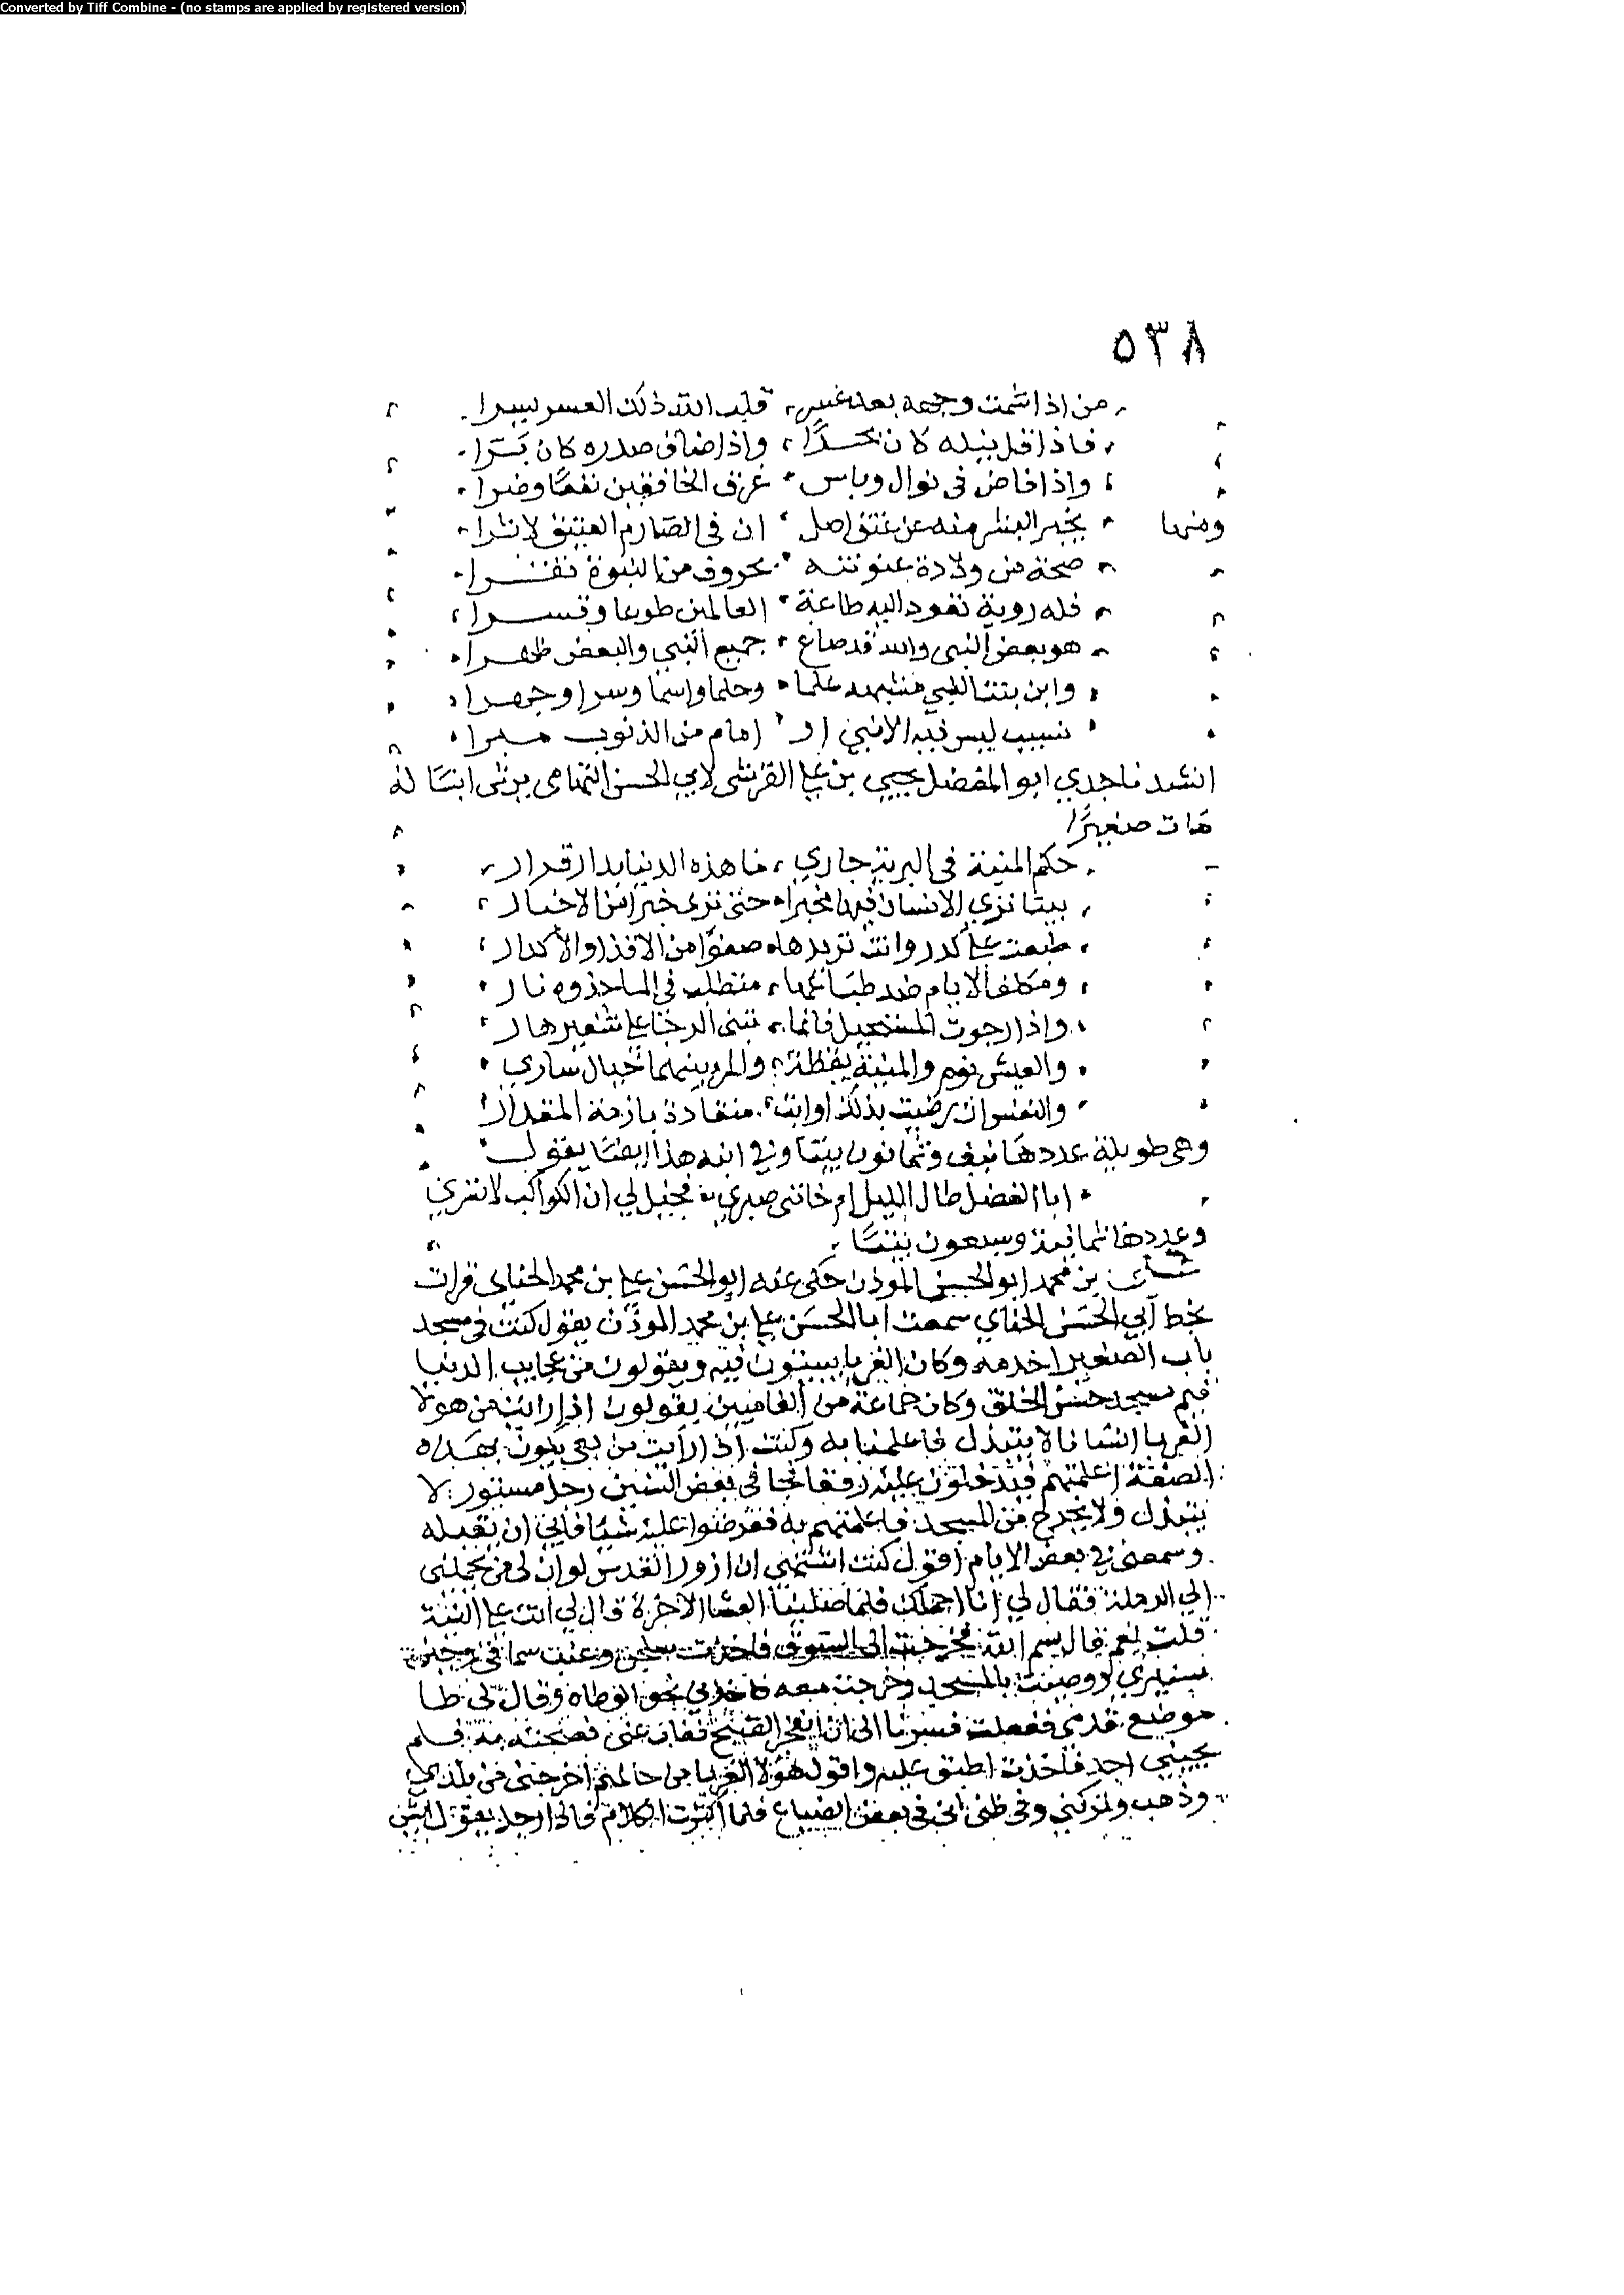 Converted by Tiff Combine - (no stamps are applied by registered version)
٥٣٨
من اذا شمت وجهه بعد عسر قلب الله ذلك العسر يسرا
فاذا قل نيله كان بحرًا واذا ضاق صدره كان بَرّا
واذا خاض فى نوال وباس غرق الخافقين نفعًا وضرا
ومنها يخبر البشر منه عن عتق اصل ان فى الصارم العتيق لاثرا
صحة من ولادة عنونته بحروف من النبوة تقرا
فله روية تقود اليه طاعة العالمين طوعا وقسرا
هو بعض النبى والله قد صاغ جميع النبي والبعض طهرا
وابن بنت النبي مشبهه علما وحلما واسمًا وسرا وجهرا
نسب ليس فيه الا نبي او امام من الذنوب مبرا
انشدنا جدي ابو المفضل يحيى بن علي القرشى لابي الحسن التهامى يرثى ابنًا له
مات صغيرًا
حكم المنية فى البرية جاري ما هذه الدنيا بدار قرار
بينا نرى الانسان فيها مخبرا حتى نرى خبرا من الاخبار
طبعت على كدر وانت تريدها صفوًا من الاقذا والاكدار
ومكلف الايام ضد طباعها متطلب فى الما جذوة نار
واذا رجوت المستحيل فانما تبنى الرجا على شفير هار
والعيش نوم والمنية يقظة والمر بينهما خيال ساري
والنفس ان رضيت بذلك او ابت منقادة بازمة المقدار
وهى طويلة عددها نيف وثمانون بيتا وفى ابنه هذا ايضًا يقول
ابا الفضل طال الليل ام خاننى صبري فخيل لي ان الكواكب لا تسري
وعددها ثمانية وسبعون بيتًا
بن محمد ابو الحسن الموذن حكى عنه ابو الحسن علي بن محمد الحناى قرات
بخط أبي الحسن الحناي سمعت ابا الحسن علي بن محمد الموذن يقول كنت فى مسجد
باب الصغير اخدمه وكان الغربا يبيتون فيه ويقولون من عجايب الدنيا
قيم مسجد حسن الخلق وكان جماعة من الشاميين يقولون اذا رايت من هولا
الغربا انسانا لا يتبذل فاعلمنا به وكنت اذا رأيت من يكون بهذه
الصفة اعلمتهم فيدخلون عليه رفقا فجا فى بعض السنين رجل مستور لا
يتبذل ولا يخرج من المسجد فاعلمتهم به فعرضوا عليه شيًا فابي ان يقبله
وسمعنى فى بعض الايام اقول كنت اشتهى ان ازور القدس لو ان لى من يحملنى
الي الرملة فقال لي أنا احملك فلما صلينا العشا الاخرة قال لي انت على النية
قلت نعم قال بسم الله فخرجت الى السوق فاخذت
ووصيت بالمسجد وخرجت معه فاخذ بي نحو وقال لى طا
موضع قدمى ففعلت فسرنا الى ان انفجر الفجر فغاب عنى فصحت به فلم
يجيبني احد فاخذت اطنق عليه واقول هؤلا الغربا من حالهم اخرجنى من بلدي
وذهب وتركني وفى ظنى انى فى بعض الضياع فلما اكثرت الكلام قال رجل يقول ايش